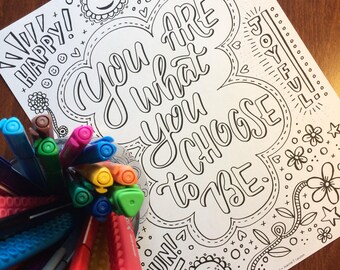 HAPPY!
YOU ARE
what
you
CHOOSE
to BE.
JOYFUL